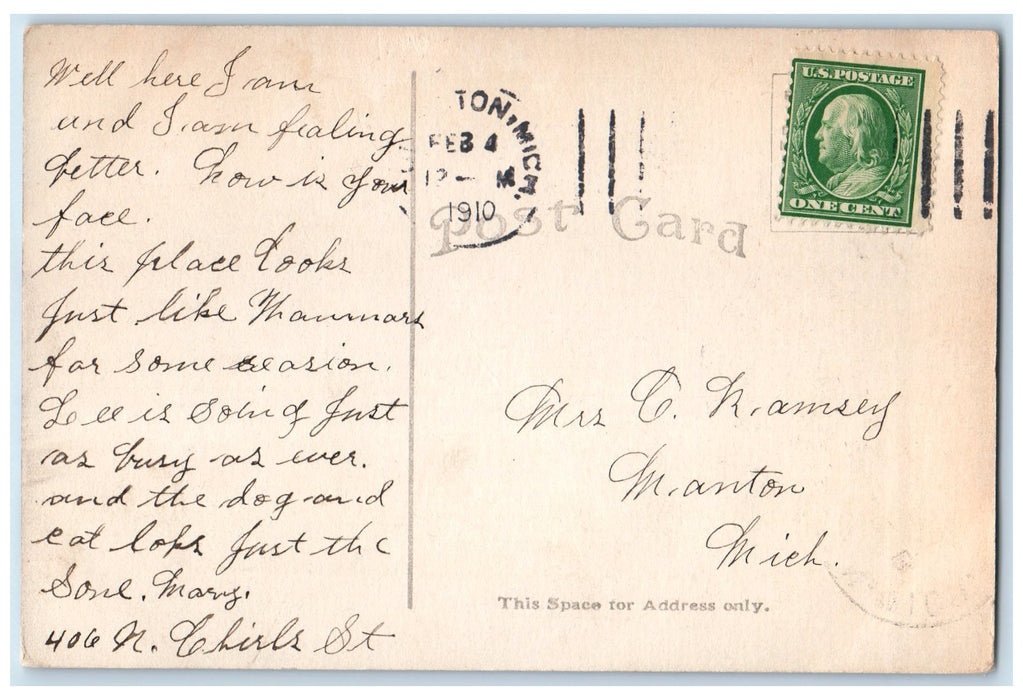 Well here I am
and I am fealing
better. how is your
face.
this place looks
Just like
for some reasion.
Lee is Soing Just
as busy as ever.
and the dog and
cat loks Just the
Same. Mary.
406 N. St
TON, MICH.
FEB 4
12 - M
1910
U.S. POSTAGE
ONE CENT
Post Card
Mrs C. Ramsey
Manton
Mich.
This Space for Address only.